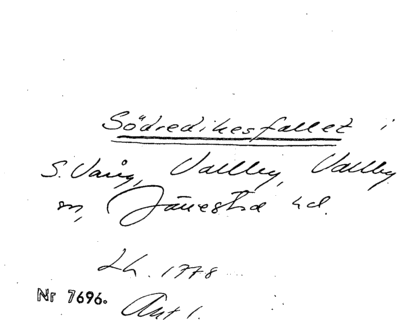 Södredikesfallet i
S. Vång, Vallby, Vallby
sn, Järrestad hd.
Lh. 1778
Nr 7696. Akt 1.